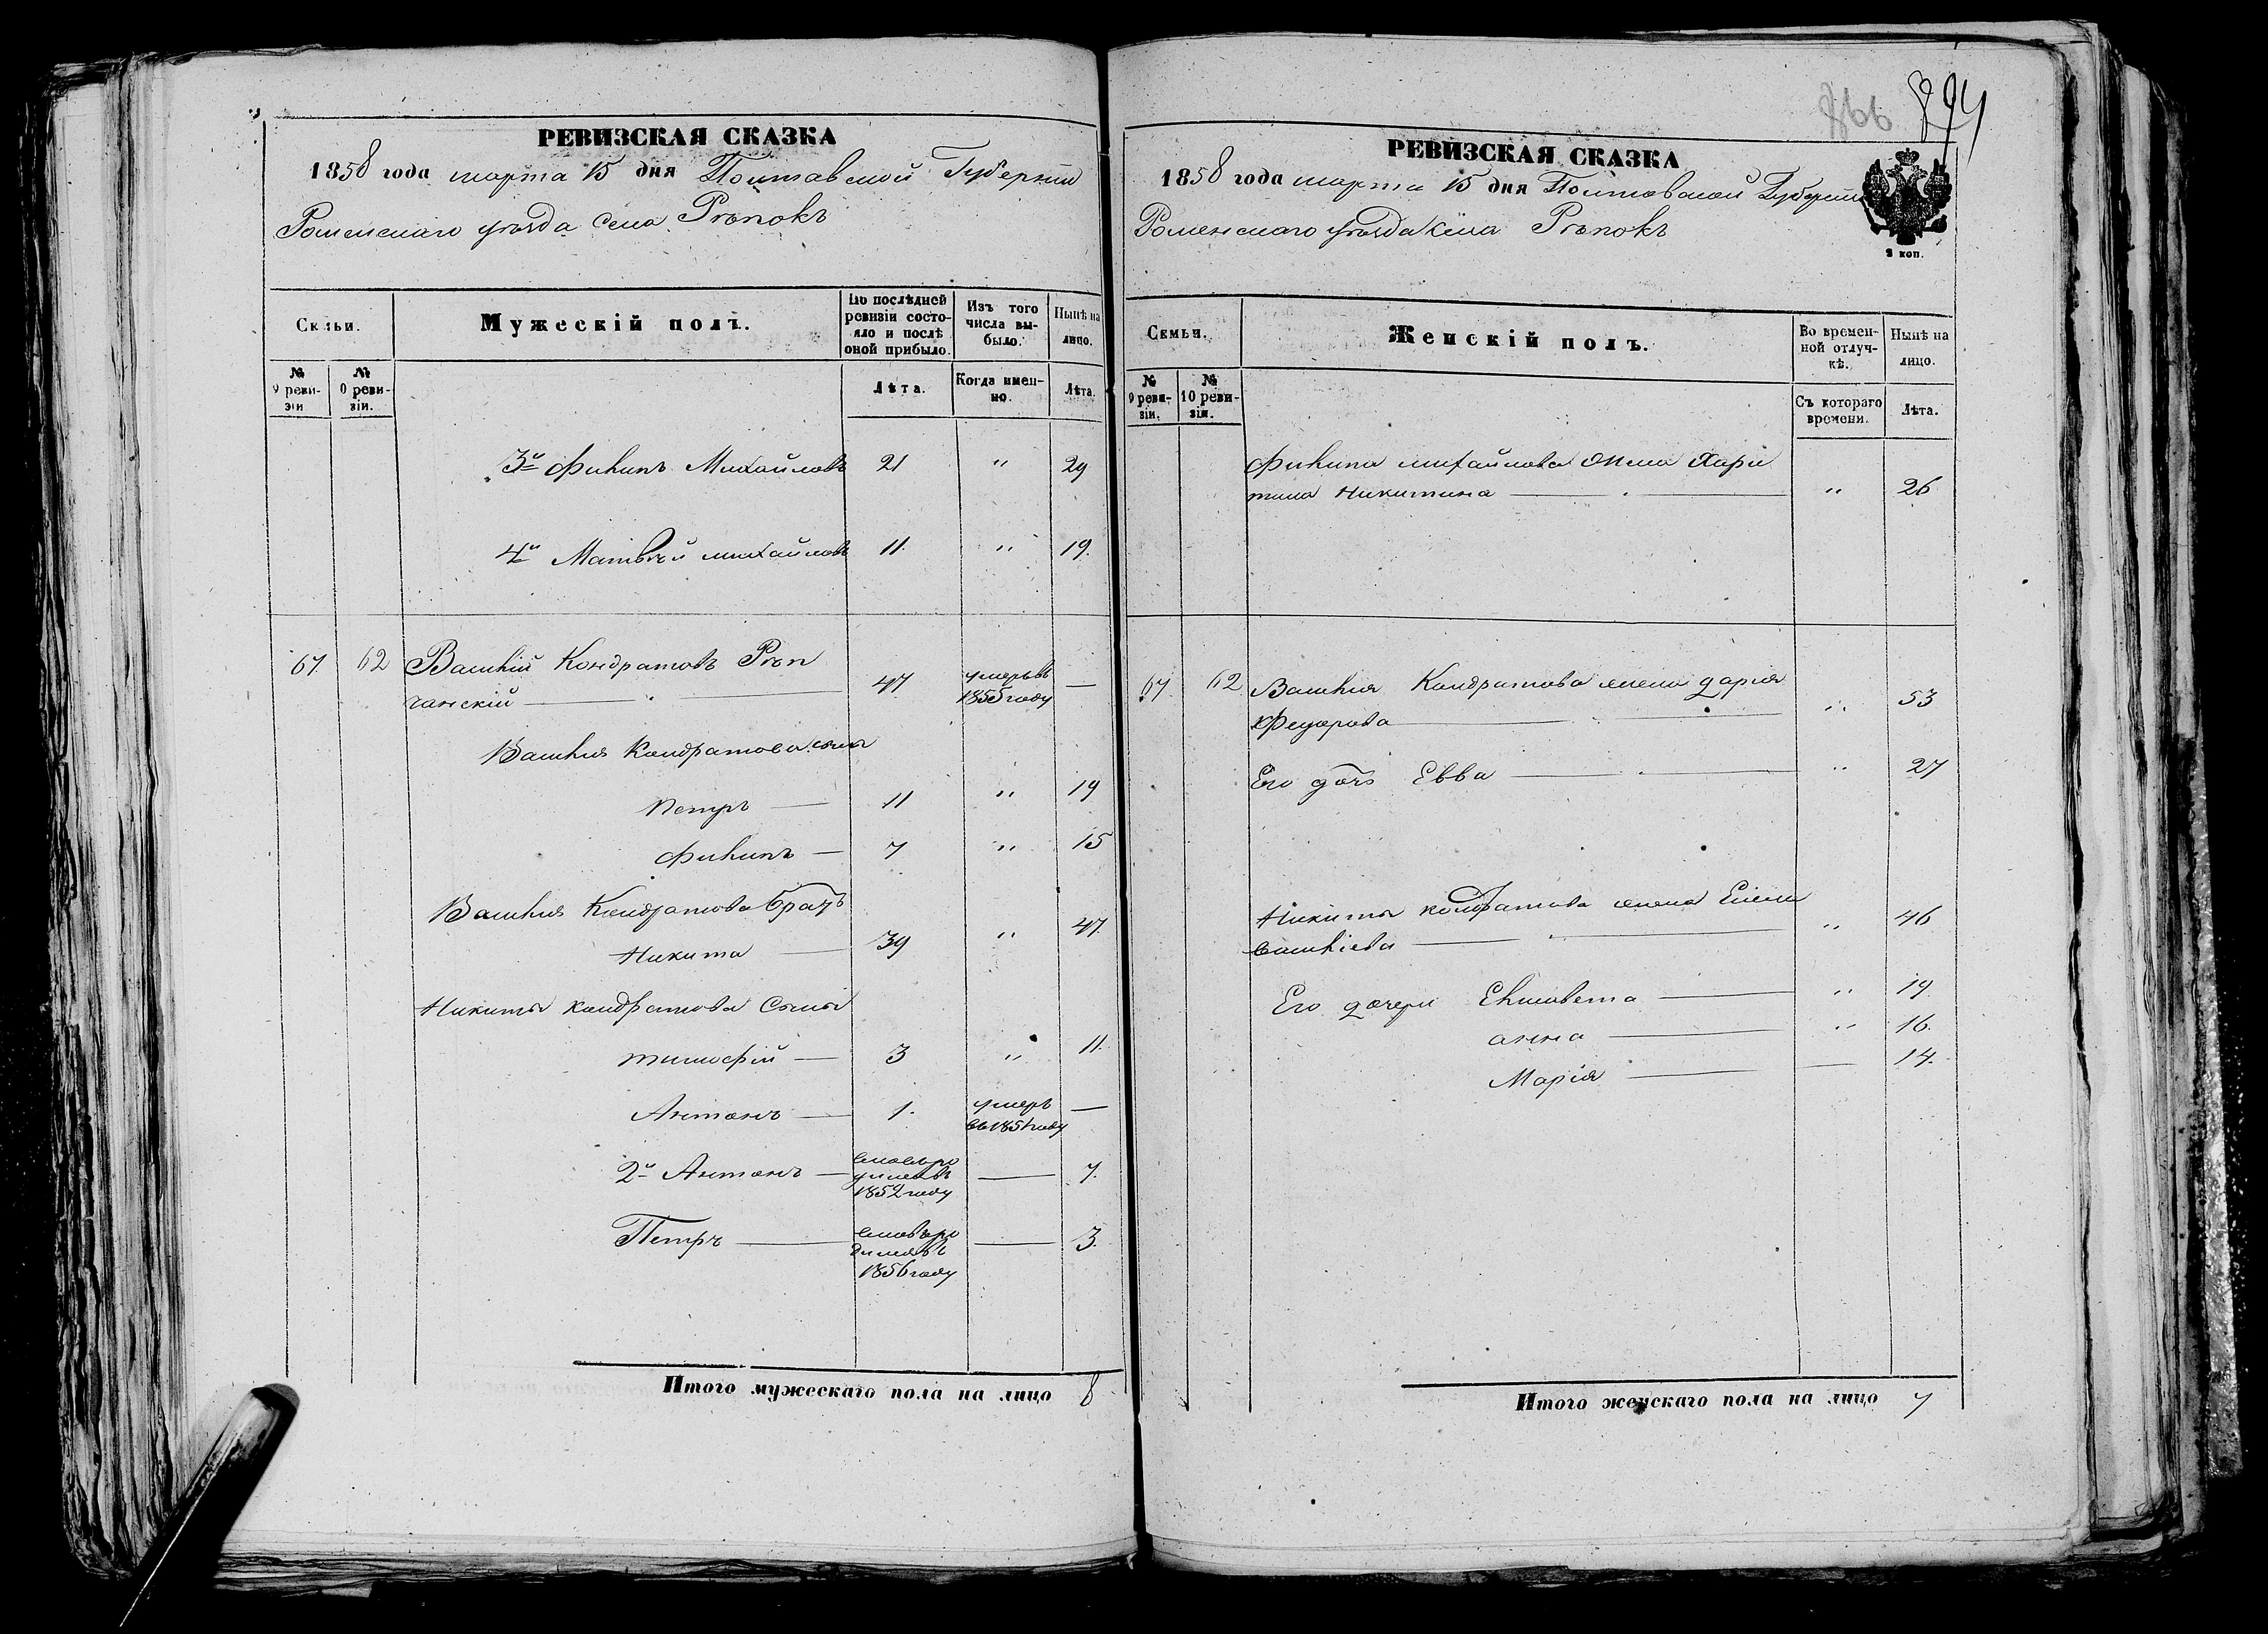 866 894
РЕВИЗСКАЯ СКАЗКА
1858 года марта 15 дня Полтавской Губерніи
Роменскаго уѣзда села Рѣпокъ
Семьи.
Мужескій полъ.
По послѣдней ревизіи состояло и послѣ оной прибыло.
Изъ того числа выбыло.
Нынѣ на лицо.
№ 9 ревизіи
№ 10 ревизіи.
Лѣта.
Когда именно.
Лѣта.
3й Филипъ Михайловъ 21 " 29
4й Матвѣй Михайловъ 11. " 19.
67 62 Василій Кондратовъ Рѣп
чанскій — 47 умеръ въ 1855 году —
Василія Кондратова сыны
Петръ — 11 " 19
Филипъ — 7 " 15
Василія Кондратова братъ
Никита — 39 " 47.
Никиты Кондратова сыны
Тимофій — 3 " 11.
Антонъ — 1. умеръ въ 1851 году —
2й Антонъ — вновь родился въ 1852 году — 7.
Петръ — вновь родился въ 1856 году — 3.
Итого мужескаго пола на лицо 8
РЕВИЗСКАЯ СКАЗКА
1858 года марта 15 дня Полтавской Губерніи
Роменскаго уѣзда села Рѣпокъ
2 коп.
Семьи.
Женскій полъ.
Во временной отлучкѣ.
Нынѣ на лицо.
№ 9 ревизіи.
№ 10 ревизіи.
Съ котораго времени.
Лѣта.
Филипа Михайлова жена Хари
тина Никитина — " 26
67 62 Василія Кондратова жена Дарія
Федорова — " 53
Его дочь Евва — " 27
Никиты Кондратова жена Елена
Василіева — " 46
Его дочери Елисавета — " 19
Анна — " 16.
Марія — — 14.
Итого женскаго пола на лицо 7